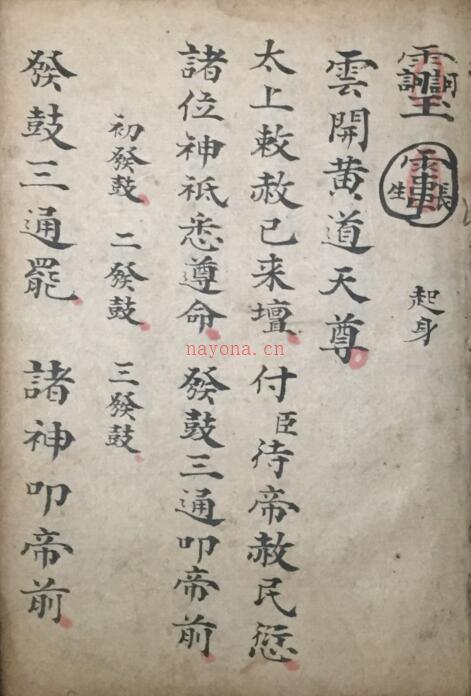 長生 起身
雲開黄道天尊
太上敕赦已来壇 付臣待帝赦民愆
諸位神祇悉尊命 發鼓三通叩帝前
初發鼓 二發鼓 三發鼓
發鼓三通罷 諸神叩帝前
nayona.cn